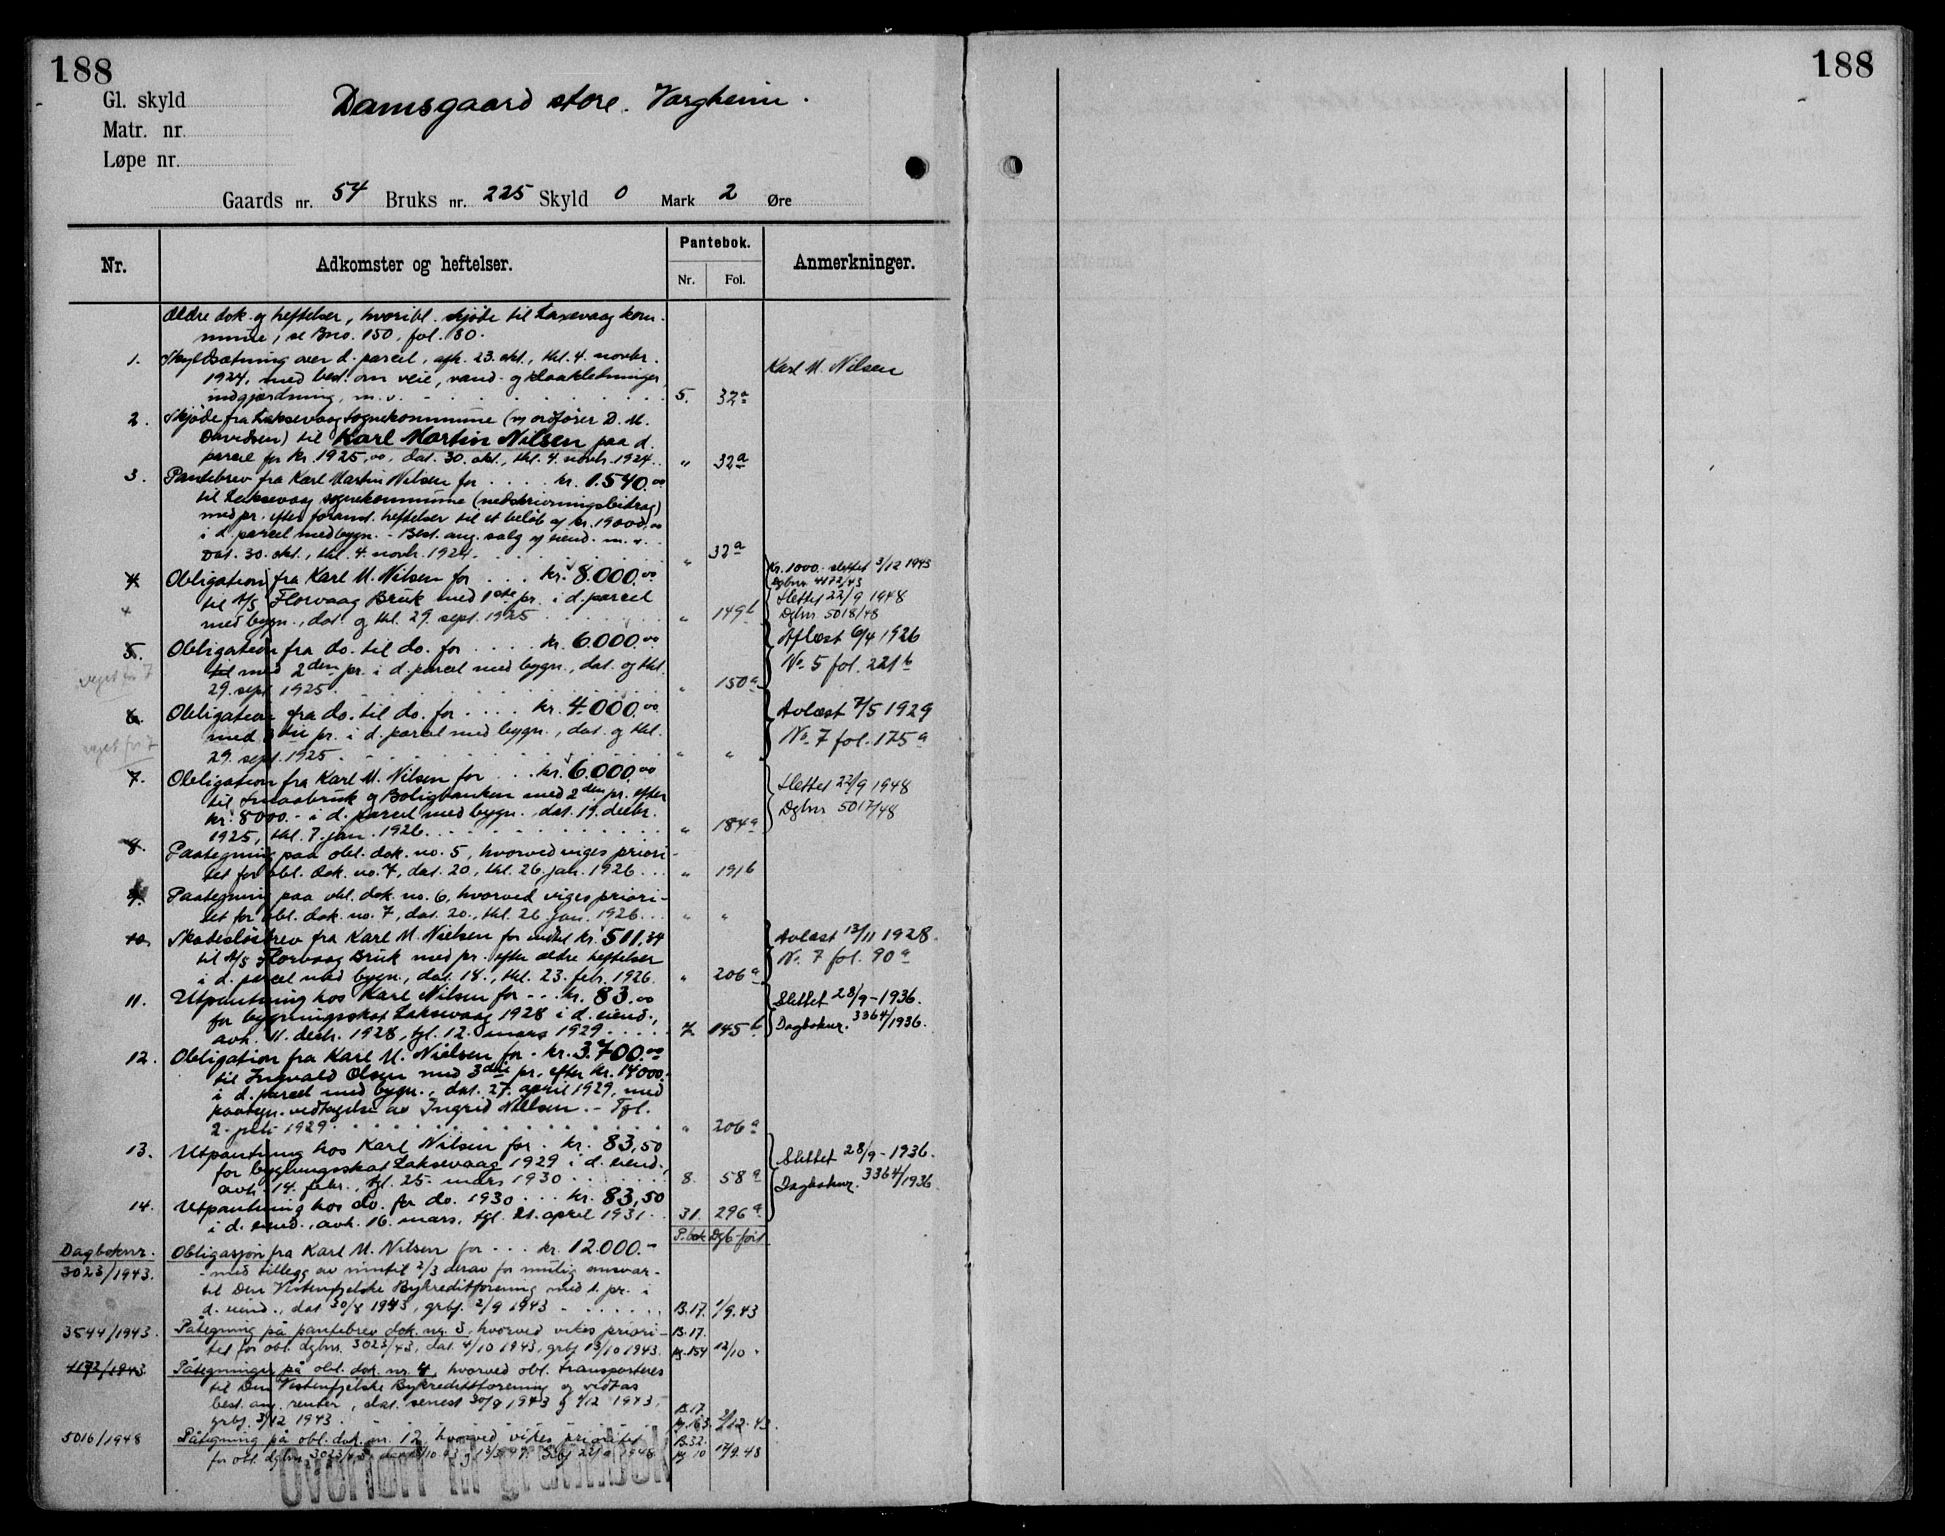 188
188
Gl. skyld
Damsgaard store. Vargheim.
Matr. nr.
Løpe nr.
Gaards nr. 54 Bruks nr. 225 Skyld 0 Mark 2 Øre
Nr. Adkomster og heftelser. Pantebok. Anmerkninger.
Nr. Fol.
Ældre dok. og heftelser, hvoribl. skjøde til Laxevaag kom-
mune, se Bno. 150, fol. 180.
1. Skyldsætning over d. parcel, afh. 23. okt., thl. 4. novbr.
Karl M. Nilsen
1924, med best. om veie, vand- og kloakledninger,
indgjærdning, m. v. 5. 32a
2. Skjøde fra Laksevaag sognekommune (v/ ordfører D. M.
Davidsen) til Karl Martin Nilsen paa d.
parcel for kr. 1925,00, dat. 30. okt., thl. 4. novbr. 1924. " 32a
3. Pantebrev fra Karl Martin Nilsen for kr. 1.540.00
til Laksevaag sognekommune (nedskrivningsbidrag)
med pr. efter forannt. heftelser til et beløb af kr. 19000,00
i d. parcel med bygn. - Best. ang. salg af eiend. m. v.
Dat. 30. okt., thl. 4. novbr. 1924. " 32a
4. Obligation fra Karl M. Nilsen for kr. 8.000.00
Kr. 1000.- slettet 3/12 1943
Dgbnr. 4172/43
til A/S Florvaag Bruk med 1ste pr. i d. parcel
Slettet 22/9 1948
med bygn., dat. og thl. 29. sept. 1925 " 149b
Dgbnr. 5018/48
5. Obligation fra do. til do. for kr. 6000.00
Aflæst 6/4 1926
veget for 7
til med 2den pr. i d. parcel med bygn., dat. og thl.
No. 5 fol. 221b
29. sept. 1925 " 150a
6. Obligation fra do. til do. for kr. 4.000.00
Avlæst 7/5 1929
veget for 7
med 3die pr. i d. parcel med bygn., dat. og thl.
No. 7 fol. 175a
29. sept. 1925 " "
7. Obligation fra Karl M. Nilsen for kr. 6.000.00
Slettet 22/9 1948
til Smaabruk og Boligbanken med 2den pr. efter
Dgbnr 5017/48
kr. 8000.- i d. parcel med bygn., dat. 19. decbr.
1925, thl. 7. jan. 1926 " 184a
8. Paategning paa obl. dok. no. 5, hvorved viges priori-
tet for obl. dok. no. 7, dat. 20., thl. 26. jan. 1926 " 191b
9. Paategning paa obl. dok. no. 6, hvorved viges priori-
tet for obl. dok. no. 7, dat. 20., thl. 26. jan. 1926 " "
10. Skadesløsbrev fra Karl M. Nielsen for indtil kr. 511.34
Avlæst 13/11 1928.
til A/S Florvaag Bruk med pr. efter ældre heftelser
No. 7 fol. 90a
i d. parcel med bygn., dat. 18., thl. 23. febr. 1926. " 206a
11. Utpantning hos Karl Nilsen for kr. 83.00
Slettet 28/9-1936.
for bygningsskat Laksevaag 1928 i d. eiend.,
Dagboknr. 3364/1936.
avh. 11. decbr. 1928, tgl. 12. mars 1929 7. 145b
12. Obligation fra Karl M. Nielsen for kr. 3.700.00
til Ingvald Olsen med 3die pr. efter kr. 14000.-
i d. parcel med bygn., dat. 27. april 1929, med
paategn. vedtagelse av Ingrid Nielsen. - Tgl.
2. juli 1929 " 206a
13. Utpantning hos Karl Nilsen for kr. 83,50
Slettet 28/9-1936.
for bygningsskat Laksevaag 1929 i d. eiend.,
Dagboknr. 3364/1936.
avh. 14. febr., tgl. 25. mars 1930 8. 58a
14. Utpantning hos do. for do. 1930 kr. 83,50
i d. eiend., avh. 16. mars, tgl. 21. april 1931. 31. 296a
P.bok Dgb-ført
Dagboknr. Obligasjon fra Karl M. Nilsen for kr. 12.000.-
3023/1943. - med tillegg av inntil 2/3 derav for mulig ansvar -
til Den Vestenfjelske Bykreditforening med 1. pr. i
d. eiend., dat. 30/8 1943, grbf. 2/9 1943 B.17. 1/9.43
3544/1943. Påtegning på pantebrev dok. nr. 3, hvorved vikes priori- B.17.
tet for obl. dgbnr. 3023/43, dat. 4/10 1943, grbf. 13/10 1943. pg. 154 12/10 "
4172/1943 Påtegninger på obl. dok. nr. 4, hvorved obl. transporteres
til Den Vestenfjelske Bykreditforening og vedtas
best. ang. renter, dat. senest 30/9 1943 og 1/12 1943, B.17.
grbf. 3/12 1943. pg. 163. 2/12.43.
5016/1948 Påtegning på obl. dok. nr. 12, hvorved vikes prioritet B.32.
for obl. dgbnr. 3023/43 pg 10 17/9.48
Overført til grunnbok